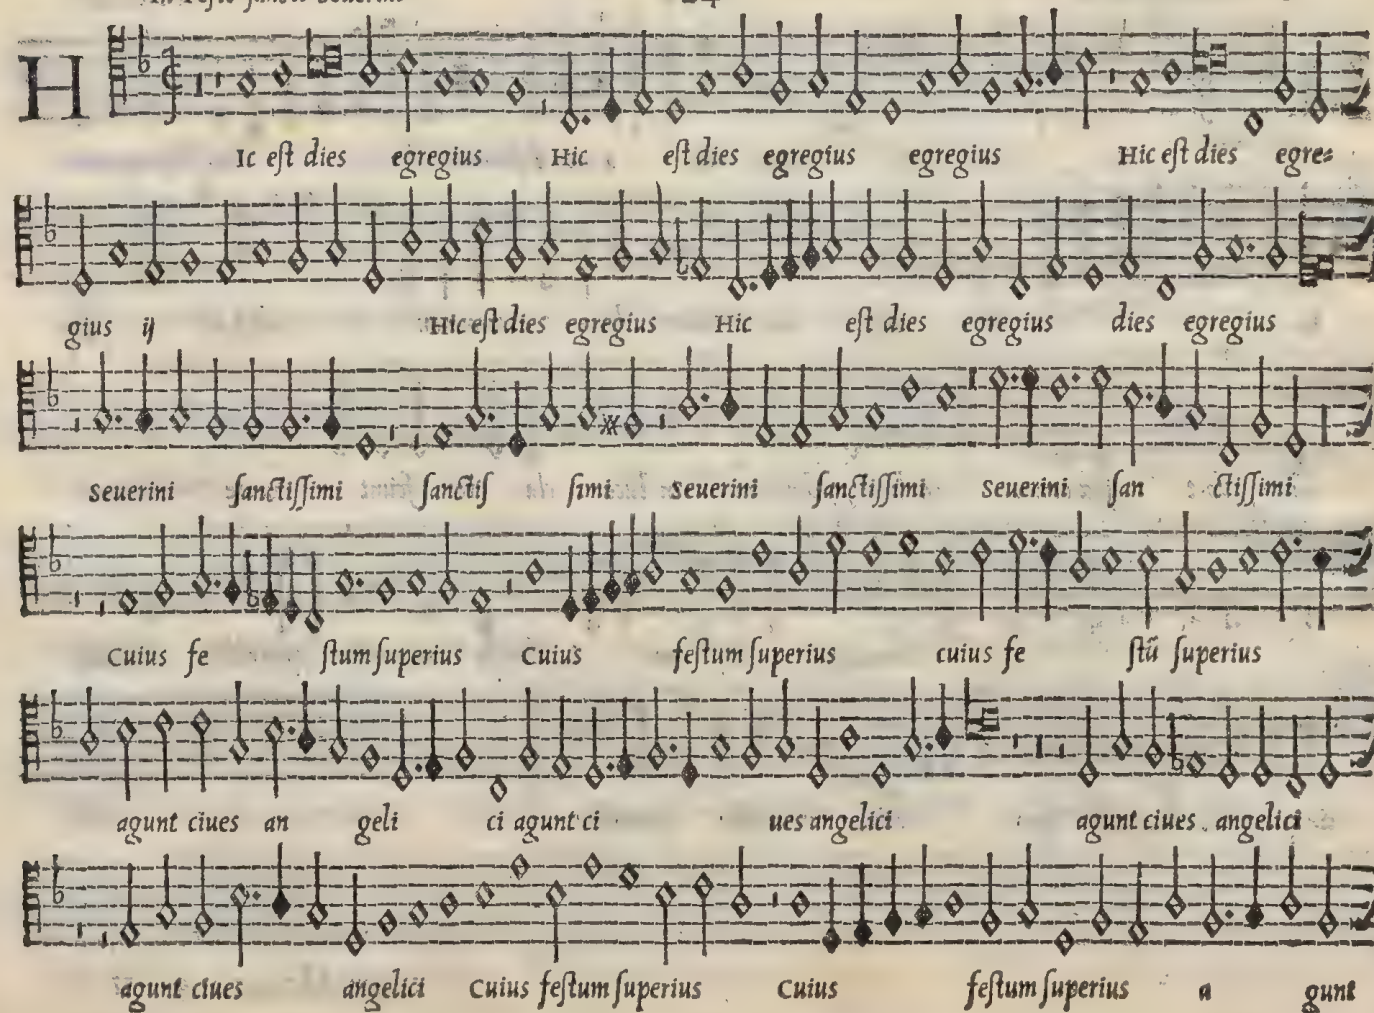 In Festo sancti Seuerini 24
HIc est dies egregius Hic est dies egregius egregius Hic est dies egre=
gius ij Hic est dies egregius Hic est dies egregius dies egregius
Seuerini sanctissimi sanctis simi Seuerini sanctissimi Seuerini san ctissimi
Cuius fe stum superius Cuius festum superius cuius fe stū superius
agunt ciues an geli ci agunt ci ues angelici agunt ciues angelici
agunt ciues angelici Cuius festum superius Cuius festum superius a gunt